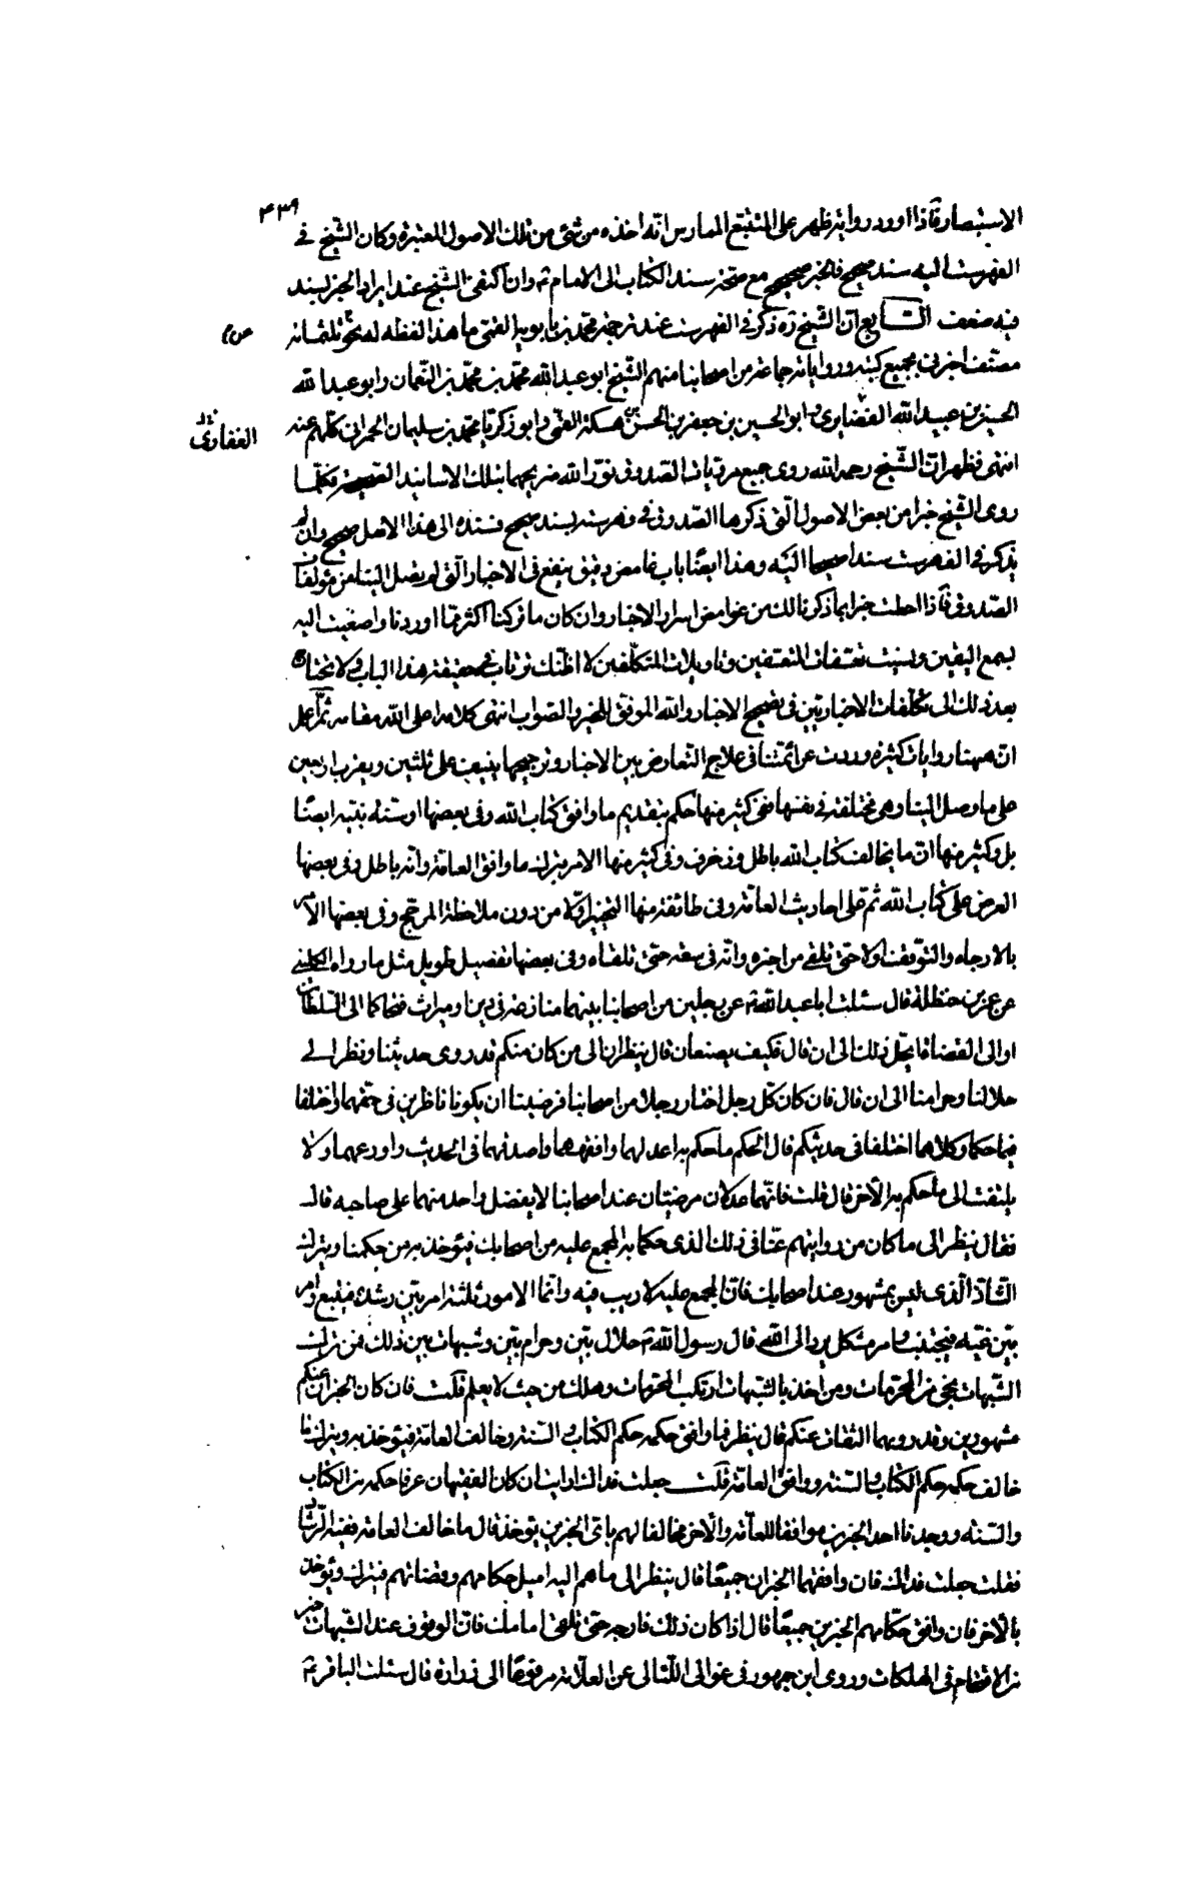 ۴۳۹
الاستبصار فاذا اورد رواية ظهر على المتتبع الممارس انّه اخذه من شئ من تلك الاصول المعتبرة وكان الشيخ في
الفهرست اليه سند صحيح فالخبر صحيح مع صحّة سند الكتاب الى الامام ع وان اكتفى الشيخ عند ايراد الخبر بسند
فيه ضعف السابع انّ الشيخ ره ذكر في الفهرست عند ترجمة محمّد بن بابويه القمّي ما هذا لفظه له نحو ثلثمائه
مصنّف اخبرني بجميع كتبه ورواياته جماعة من اصحابنا منهم الشيخ ابو عبد الله محمّد بن محمّد بن النعمان وابو عبد الله
الحسين بن عبيد الله الغضايرى وابو الحسين بن جعفر بن الحسن بن حسكة القمّي وابو زكريا محمد بن سليمان الحمراني كلّهم عنه
الغفارى
انتهى فظهر انّ الشيخ رحمه الله روى جميع مرويات الصدوق نوّر الله ضريحهما بتلك الاسانيد الصحيحة فكلّما
روى الشيخ خبرا من بعض الاصول الّتى ذكرها الصّدوق في فهرسته بسند صحيح فسنده الى هذا الاصل صحيح وان لم
يذكر في الفهرست سندا صحيحا اليه وهذا ايضًا باب غامض دقيق ينفع في الاخبار الّتى لم يصل الينا من مؤلفات
الصّدوق فاذا احطت خبرا بما ذكرنا لك من غوامض اسرار الاخبار وان كان ما تركنا اكثر ممّا اوردنا واصغيت اليه
بسمع اليقين ونسيت تعسّفات المتعسّفين وتاويلات المتكلّفين لا اظنّك ترتاب في حقيقة هذا الباب ولا تحتاج
بعد ذلك الى تكلّفات الاخباريّين في تصحيح الاخبار والله الموفق للخير والصواب انتهى كلامه اعلى الله مقامه ثمّ اعلم
ان ههنا روايات كثيرة وردت عن ائمّتنا في علاج التعارض بين الاخبار وترجيحها ينيف على ثلثين ويقرب اربعين
على ما وصل الينا وهى مختلفة في نفسها ففى كثير منها حكم بتقديم ما وافق كتاب الله وفى بعضها او سنّة نبيّه ايضًا
بل وكثير منها انّ ما يخالف كتاب الله باطل وزخرف وفى كثير منها الامر بترك ما وافق العامّة وانّه باطل وفى بعضها
العرض على كتاب الله ثم على احاديث العامّة وفى طائفة منها التخيير اوّلا من دون ملاحظة المرجّح وفى بعضها الامر
بالارجاء والتوّقف اولا حتى تلقى من اخبره وانّه في سعة حتى تلقاه وفى بعضها تفصيل طويل مثل ما رواه الكلينى
عن عمر بن حنظلة قال سئلت ابا عبد الله ع عن رجلين من اصحابنا بينهما منازعة في دين او ميراث فتحاكما الى السّلطان
او الى القضاة ايحلّ ذلك الى ان قال فكيف يصنعان قال ينظران الى من كان منكم قد روى حديثنا ونظر الى
حلالنا وحرامنا الى ان قال فان كان كلّ رجل اختار رجلا من اصحابنا فرضيا ان يكونا ناظرين في حقّهما واختلفا
فيما حكما وكلاهما اختلفا في حديثكم قال الحكم ما حكم به اعدلهما وافقههما واصدقهما في الحديث واورعهما ولا
يلتفت الى ما حكم به الآخر قال قلت فانّهما عدلان مرضيّان عند اصحابنا لا يفضل واحد منهما على صاحبه قال
فقال ينظر الى ما كان من روايتهم عنّا في ذلك الذى حكما به المجمع عليه من اصحابك فيؤخذ به من حكمنا ويترك
الشّاذ الّذى ليس بمشهور عند اصحابك فانّ المجمع عليه لا ريب فيه وانّما الامور ثلثة امر بيّن رشده فيتّبع وامر
بيّن غيّه فيجتنب وامر مشكل يردّ الى الله قال رسول الله ص حلال بيّن وحرام بيّن وشبهات بين ذلك فمن ترك
الشّبهات نجى من المحرّمات ومن اخذ بالشّبهات ارتكب المحرّمات وهلك من حيث لا يعلم قلت فان كان الخبران عنكم
مشهورين وقد رويهما الثقات عنكم قال ينظر فما وافق حكمه حكم الكتاب والسّنة وخالف العامّة فيؤخذ به ويترك ما
خالف حكمه حكم الكتاب والسّنة ووافق العامّة قلت جعلت فداك ارايت ان كان الفقيهان عرفا حكمه من الكتاب
والسّنة ووجدنا احد الخبرين موافقا للعامّة والآخر مخالفا لهم باىّ الخبرين يؤخذ قال ما خالف العامّة ففيه الرّشاد
فقلت جعلت فداك فان وافقهما الخبران جميعًا قال ينظر الى ما هم اليه اميل حكامهم وقضاتهم فيترك ويؤخذ
بالآخر فان وافق حكّامهم الخبرين جميعًا قال اذا كان ذلك فارجه حتى تلقى امامك فانّ الوقوف عند الشّبهات خير
من الاقتحام في الهلكات وروى ابن جمهور في غوالى اللّئالى عن العلّامة مرفوعًا الى زرارة قال سئلت الباقر ع